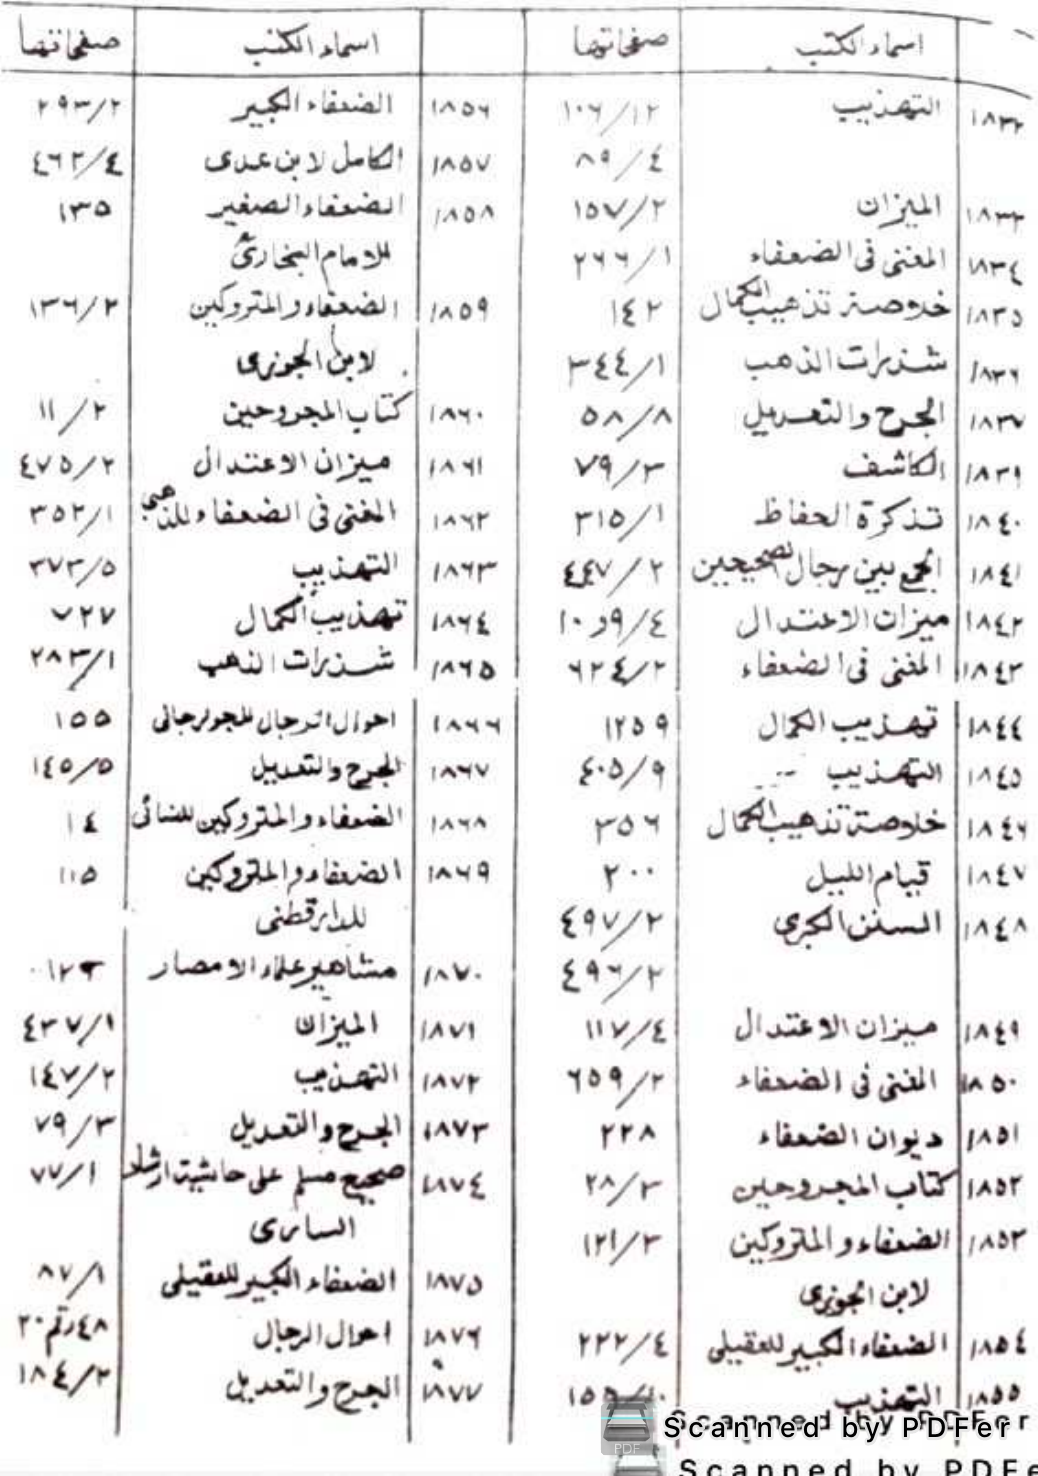 اسماء الكتب صفحاتها
١٨٣٢ التهذيب ١٠٦/١٢
٨٩/٤
١٨٣٣ الميزان ١٥٧/٢
١٨٣٤ المغنى فى الضعفاء ٢٦٦/١
١٨٣٥ خلاصة تذهيب الكمال ١٤٢
١٨٣٦ شذرات الذهب ٣٤٤/١
١٨٣٧ الجرح والتعديل ٥٨/٨
١٨٣٩ الكاشف ٧٩/٣
١٨٤٠ تذكرة الحفاظ ٣١٥/١
١٨٤١ الجمع بين رجال الصحيحين ٤٤٧/٢
١٨٤٢ ميزان الاعتدال ٩/٤ و١٠
١٨٤٣ المغنى فى الضعفاء ٦٢٤/٢
١٨٤٤ تهذيب الكمال ١٢٥٩
١٨٤٥ التهذيب ٤٠٥/٩
١٨٤٦ خلاصة تذهيب الكمال ٣٥٦
١٨٤٧ قيام الليل ٢٠٠
١٨٤٨ السنن الكبرى ٤٩٧/٢
٤٩٦/٢
١٨٤٩ ميزان الاعتدال ١١٧/٤
١٨٥٠ المغنى فى الضعفاء ٦٥٩/٢
١٨٥١ ديوان الضعفاء ٢٢٨
١٨٥٢ كتاب المجروحين ٢٨/٣
١٨٥٣ الضعفاء والمتروكين ١٢١/٣
لابن الجوزى
١٨٥٤ الضعفاء الكبير للعقيلى ٢٢٢/٤
١٨٥٥ التهذيب
اسماء الكتب صفحاتها
١٨٥٦ الضعفاء الكبير ٢٩٣/٢
١٨٥٧ الكامل لابن عدى ٤٦٢/٤
١٨٥٨ الضعفاء الصغير ١٣٥
للامام البخارى
١٨٥٩ الضعفاء والمتروكين ١٣٦/٢
لابن الجوزى
١٨٦٠ كتاب المجروحين ١١/٢
١٨٦١ ميزان الاعتدال ٤٧٥/٢
١٨٦٢ المغنى فى الضعفاء للذهبى ٣٥٢/١
١٨٦٣ التهذيب ٣٧٣/٥
١٨٦٤ تهذيب الكمال ٧٢٧
١٨٦٥ شذرات الذهب ٢٨٣/١
١٨٦٦ احوال الرجال للجوزجانى ١٥٥
١٨٦٧ الجرح والتعديل ١٤٥/٥
١٨٦٨ الضعفاء والمتروكين للنسائى ١٤
١٨٦٩ الضعفاء والمتروكين ١١٥
للدارقطنى
١٨٧٠ مشاهير علماء الامصار
١٨٧١ الميزان ٤٣٧/١
١٨٧٢ التهذيب ١٤٧/٢
١٨٧٣ الجرح والتعديل ٧٩/٣
١٨٧٤ صحيح مسلم على حاشية ارشاد ٧٧/١
السارى
١٨٧٥ الضعفاء الكبير للعقيلى ٨٧/١
١٨٧٦ احوال الرجال ٤٨ رقم ٢٠
١٨٧٧ الجرح والتعديل ١٨٤/٢
PDF
Scanned by PDFer
Scanned by PDFe